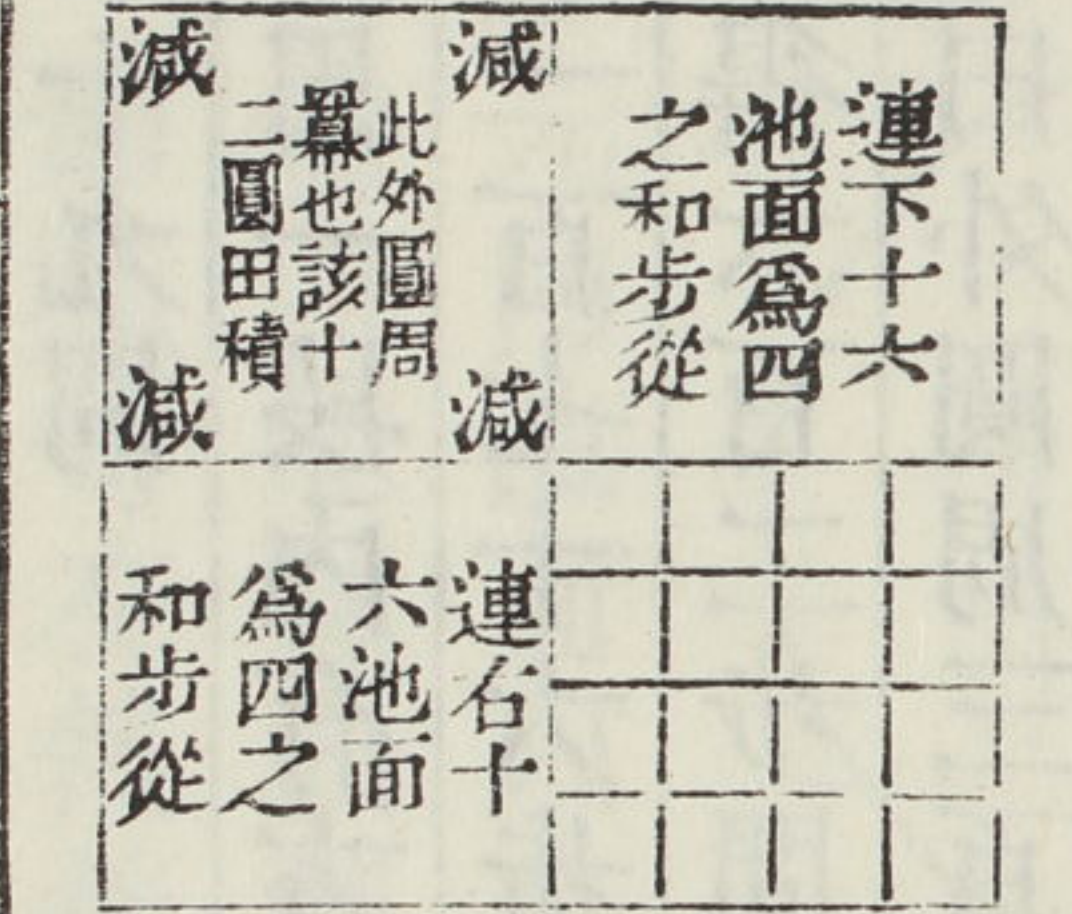 連下十六
池面爲四
之和步從
減 減
此外圓周
冪也該十
二圓田積
減 減
連石十
六池面
爲四之
和步從